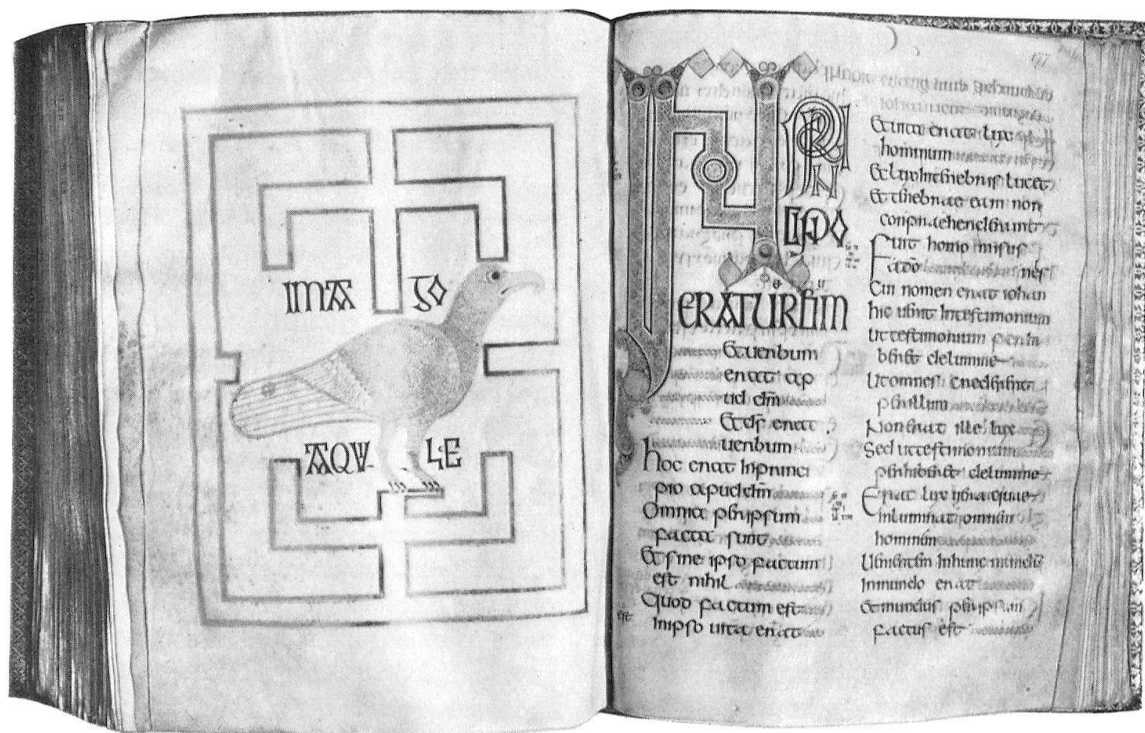 IMA GO
AQVI LE
177
IN PRIN
CIPIO
ERAT UERBUM
Et uerbum
erat ap
ud dm̄
Et ds̄ erat
uerbum
hoc erat Inprinci
pio apud dm̄
Omnia per ipsum
facta sunt
Et sine ipso factum
est nihil
Quod factum est
Inipso uita erat
Et uita erat lux
hominum
Et lux Intenebris lucet
Et tenebrae eam non
Fuit homo misus
a dō nes
Cui nomen erat iohan
hic uenit Intestimonium
Ut testimonium perhi
beret de lumine
Ut omnes crederent
per illum
Non erat ille lux
Sed ut testimonium
perhiberet de lumine
Erat lux uera quae
inluminat omnem
hominem
Uenientem Inhunc mundū
Inmundo erat
Et mundus per ipsum
factus est